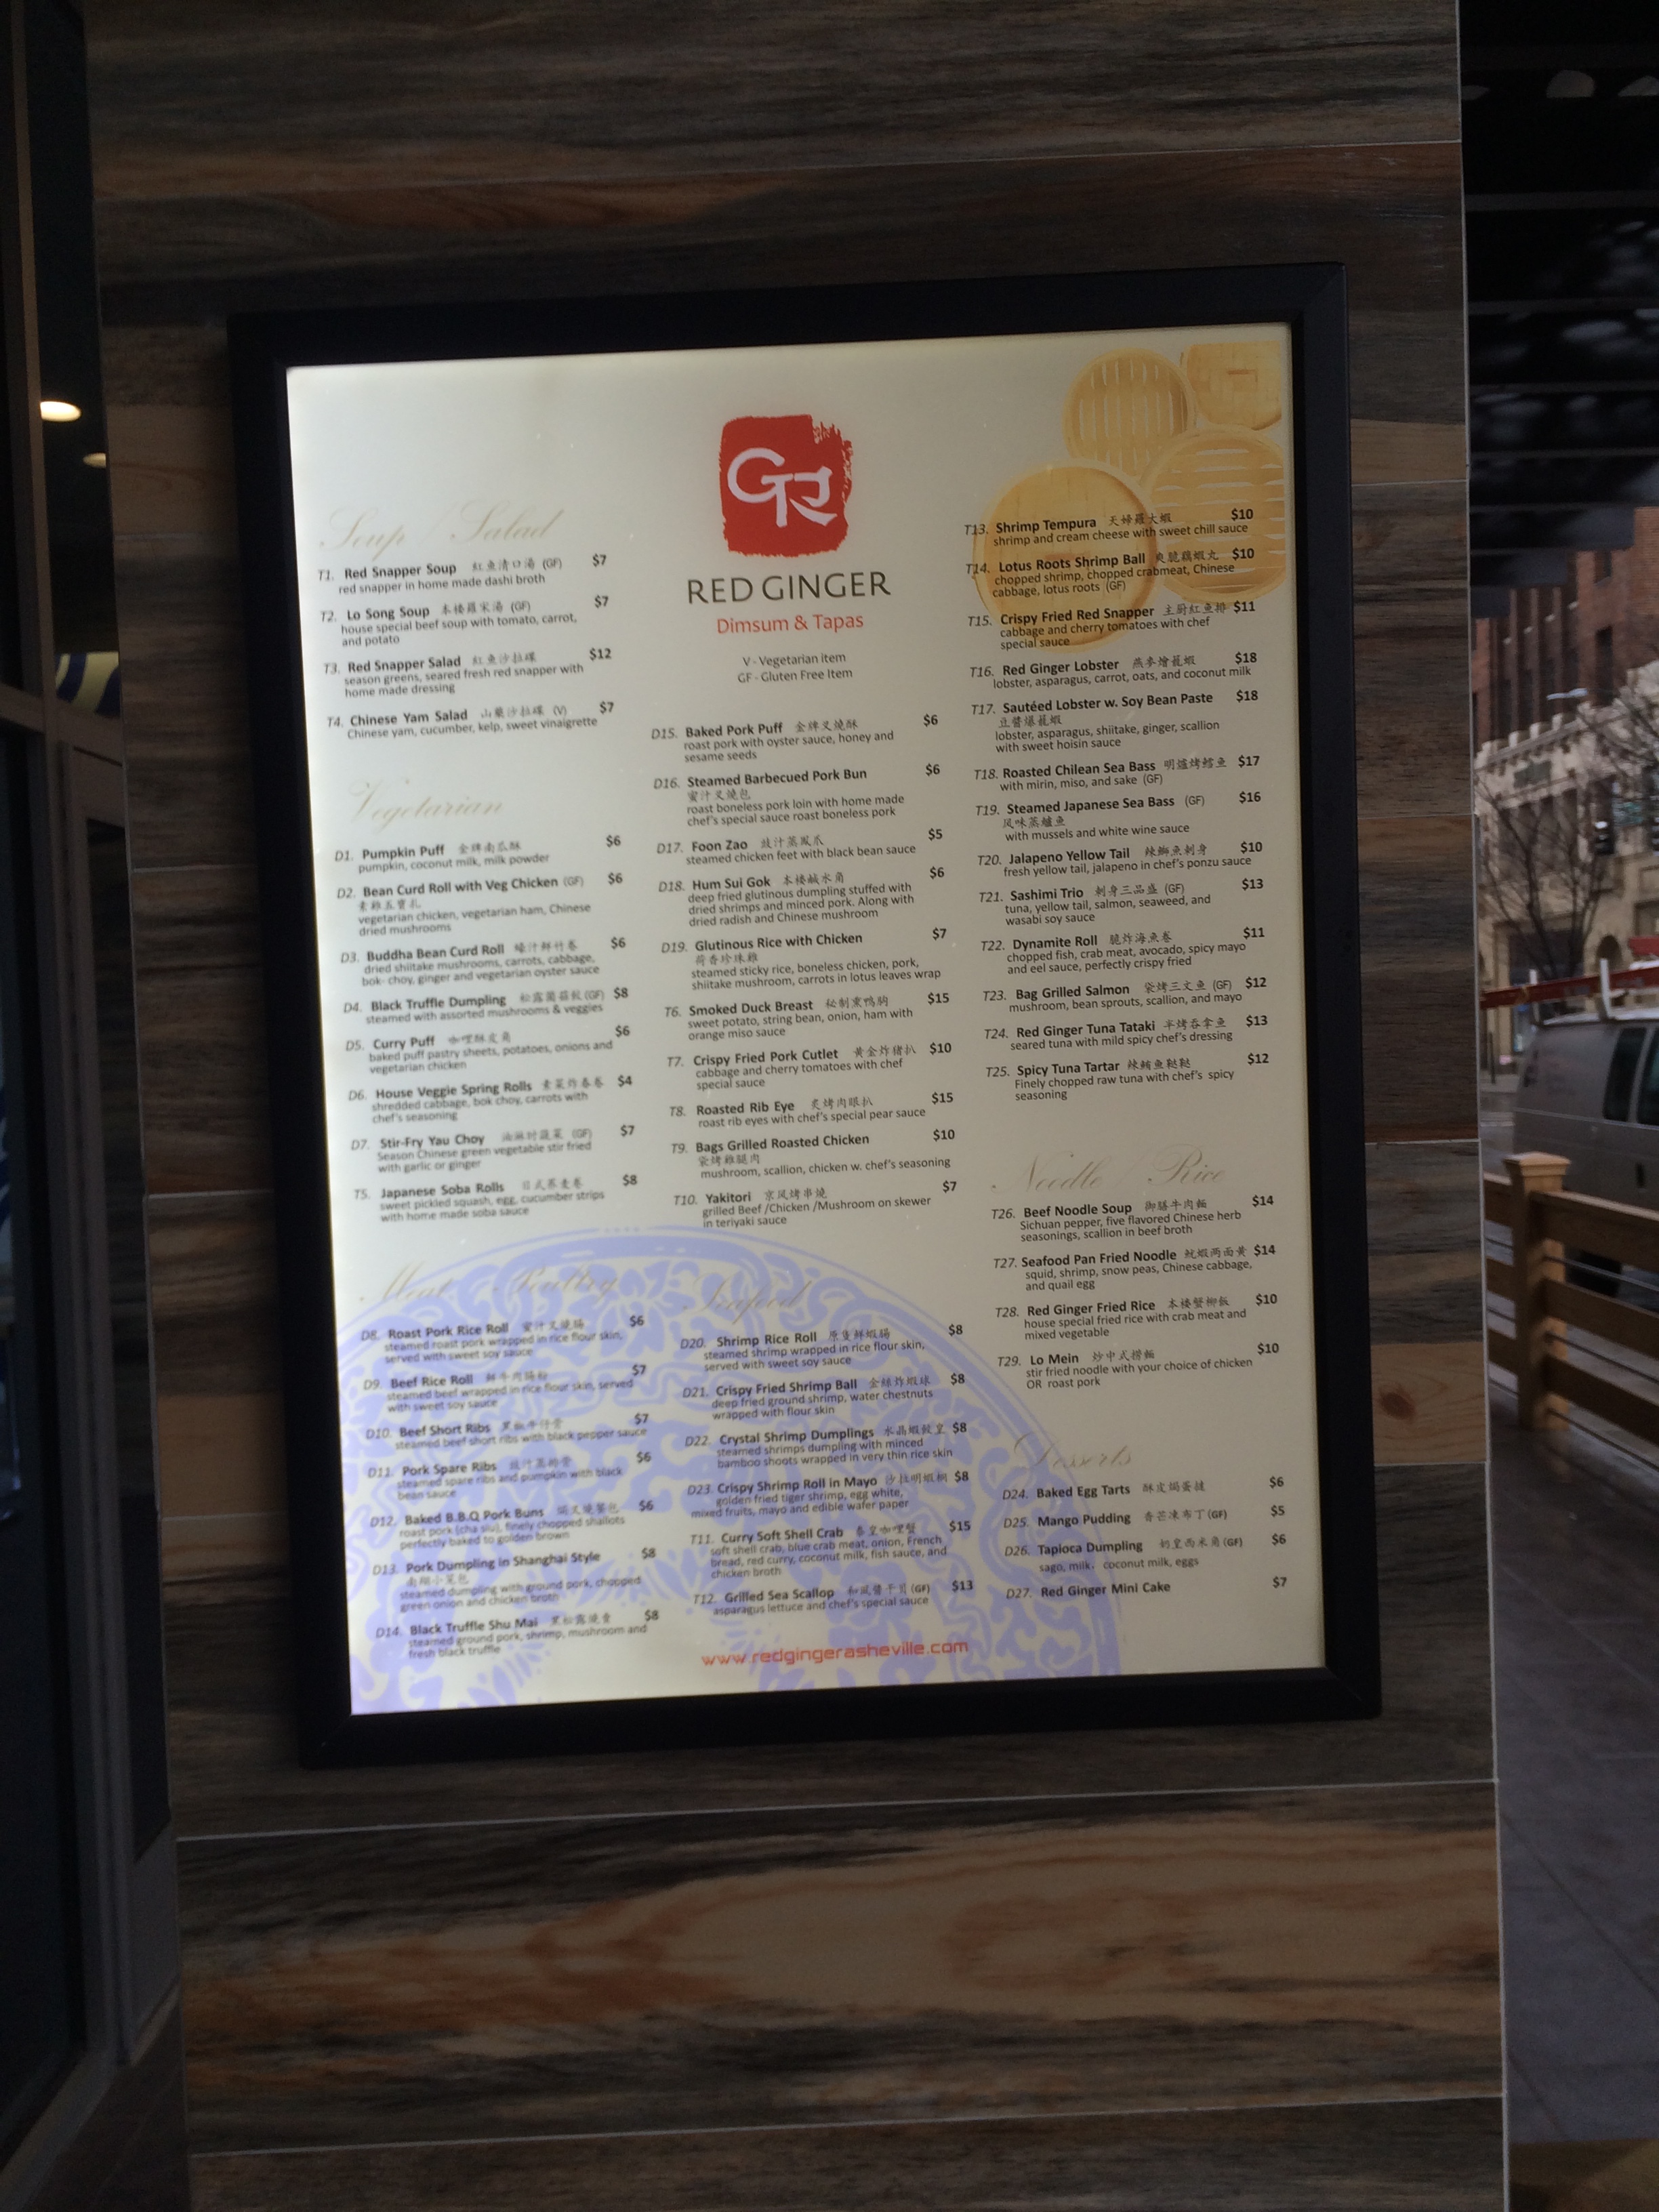 Soup Salad
T1. Red Snapper Soup 紅魚清口湯 (GF) $7
red snapper in home made dashi broth
T2. Lo Song Soup 本楼羅宋湯 (GF) $7
house special beef soup with tomato, carrot,
and potato
T3. Red Snapper Salad 紅魚沙拉碟 $12
season greens, seared fresh red snapper with
home made dressing
T4. Chinese Yam Salad 山藥沙拉碟 (V) $7
Chinese yam, cucumber, kelp, sweet vinaigrette
Vegetarian
D1. Pumpkin Puff 金牌南瓜酥 $6
pumpkin, coconut milk, milk powder
D2. Bean Curd Roll with Veg Chicken (GF) $6
素雞五寶扎
vegetarian chicken, vegetarian ham, Chinese
dried mushrooms
D3. Buddha Bean Curd Roll 蠔汁鮮竹卷 $6
dried shiitake mushrooms, carrots, cabbage,
bok- choy, ginger and vegetarian oyster sauce
D4. Black Truffle Dumpling (GF) $8
steamed with assorted mushrooms & veggies
D5. Curry Puff 咖哩酥皮角 $6
baked puff pastry sheets, potatoes, onions and
vegetarian chicken
D6. House Veggie Spring Rolls 素菜炸春卷 $4
shredded cabbage, bok choy, carrots with
chef's seasoning
D7. Stir-Fry Yau Choy 油淋時蔬菜 (GF) $7
Season Chinese green vegetable stir fried
with garlic or ginger
T5. Japanese Soba Rolls 日式蕎麦卷 $8
sweet pickled squash, egg, cucumber strips
with home made soba sauce
Meat Poultry
D8. Roast Pork Rice Roll 蜜汁叉燒腸 $6
steamed roast pork wrapped in rice flour skin,
served with sweet soy sauce
D9. Beef Rice Roll 鮮牛肉腸粉 $7
steamed beef wrapped in rice flour skin, served
with sweet soy sauce
D10. Beef Short Ribs 黑椒牛仔骨 $7
steamed beef short ribs with black pepper sauce
D11. Pork Spare Ribs 豉汁蒸排骨 $6
steamed spare ribs and pumpkin with black
bean sauce
D12. Baked B.B.Q Pork Buns 焗叉燒餐包 $6
roast pork (cha siu), finely chopped shallots
perfectly baked to golden brown
D13. Pork Dumpling in Shanghai Style $8
南翔小笼包
steamed dumpling with ground pork, chopped
green onion and chicken broth
D14. Black Truffle Shu Mai 黑松露燒賣 $8
steamed ground pork, shrimp, mushroom and
fresh black truffle
GR
RED GINGER
Dimsum & Tapas
V - Vegetarian item
GF - Gluten Free Item
D15. Baked Pork Puff 金牌叉燒酥 $6
roast pork with oyster sauce, honey and
sesame seeds
D16. Steamed Barbecued Pork Bun $6
蜜汁叉燒包
roast boneless pork loin with home made
chef's special sauce roast boneless pork
D17. Foon Zao 豉汁蒸鳳爪 $5
steamed chicken feet with black bean sauce
D18. Hum Sui Gok 本楼鹹水角 $6
deep fried glutinous dumpling stuffed with
dried shrimps and minced pork. Along with
dried radish and Chinese mushroom
D19. Glutinous Rice with Chicken $7
荷香珍珠雞
steamed sticky rice, boneless chicken, pork,
shiitake mushroom, carrots in lotus leaves wrap
T6. Smoked Duck Breast 秘制熏鸭胸 $15
sweet potato, string bean, onion, ham with
orange miso sauce
T7. Crispy Fried Pork Cutlet 黃金炸猪扒 $10
cabbage and cherry tomatoes with chef
special sauce
T8. Roasted Rib Eye 炙烤肉眼扒 $15
roast rib eyes with chef's special pear sauce
T9. Bags Grilled Roasted Chicken $10
袋烤雞腿肉
mushroom, scallion, chicken w. chef's seasoning
T10. Yakitori 京风烤串燒 $7
grilled Beef /Chicken /Mushroom on skewer
in teriyaki sauce
Seafood
D20. Shrimp Rice Roll 原隻鮮蝦腸 $8
steamed shrimp wrapped in rice flour skin,
served with sweet soy sauce
D21. Crispy Fried Shrimp Ball 金絲炸蝦球 $8
deep fried ground shrimp, water chestnuts
wrapped with flour skin
D22. Crystal Shrimp Dumplings 水晶蝦餃皇 $8
steamed shrimps dumpling with minced
bamboo shoots wrapped in very thin rice skin
D23. Crispy Shrimp Roll in Mayo 沙拉明蝦桐 $8
golden fried tiger shrimp, egg white,
mixed fruits, mayo and edible wafer paper
T11. Curry Soft Shell Crab 泰皇咖哩蟹 $15
soft shell crab, blue crab meat, onion, French
bread, red curry, coconut milk, fish sauce, and
chicken broth
T12. Grilled Sea Scallop 和風醬干貝 (GF) $13
asparagus lettuce and chef's special sauce
www.redgingerasheville.com
T13. Shrimp Tempura 天婦羅大蝦 $10
shrimp and cream cheese with sweet chill sauce
T14. Lotus Roots Shrimp Ball 爽脆藕蝦丸 $10
chopped shrimp, chopped crabmeat, Chinese
cabbage, lotus roots (GF)
T15. Crispy Fried Red Snapper 主厨紅魚排 $11
cabbage and cherry tomatoes with chef
special sauce
T16. Red Ginger Lobster 燕麥燴龍蝦 $18
lobster, asparagus, carrot, oats, and coconut milk
T17. Sautéed Lobster w. Soy Bean Paste $18
豆醬爆龍蝦
lobster, asparagus, shiitake, ginger, scallion
with sweet hoisin sauce
T18. Roasted Chilean Sea Bass 明爐烤鱈魚 $17
with mirin, miso, and sake (GF)
T19. Steamed Japanese Sea Bass (GF) $16
风味蒸鱸鱼
with mussels and white wine sauce
T20. Jalapeno Yellow Tail 辣鰤魚刺身 $10
fresh yellow tail, jalapeno in chef's ponzu sauce
T21. Sashimi Trio 刺身三品盛 (GF) $13
tuna, yellow tail, salmon, seaweed, and
wasabi soy sauce
T22. Dynamite Roll 脆炸海魚卷 $11
chopped fish, crab meat, avocado, spicy mayo
and eel sauce, perfectly crispy fried
T23. Bag Grilled Salmon 袋烤三文魚 (GF) $12
mushroom, bean sprouts, scallion, and mayo
T24. Red Ginger Tuna Tataki 半烤吞拿鱼 $13
seared tuna with mild spicy chef's dressing
T25. Spicy Tuna Tartar 辣鮪魚韃韃 $12
Finely chopped raw tuna with chef's spicy
seasoning
Noodle Rice
T26. Beef Noodle Soup 御膳牛肉麵 $14
Sichuan pepper, five flavored Chinese herb
seasonings, scallion in beef broth
T27. Seafood Pan Fried Noodle 魷蝦两面黄 $14
squid, shrimp, snow peas, Chinese cabbage,
and quail egg
T28. Red Ginger Fried Rice 本楼蟹柳飯 $10
house special fried rice with crab meat and
mixed vegetable
T29. Lo Mein 炒中式撈麵 $10
stir fried noodle with your choice of chicken
OR roast pork
Desserts
D24. Baked Egg Tarts 酥皮焗蛋撻 $6
D25. Mango Pudding 香芒凍布丁(GF) $5
D26. Tapioca Dumpling 奶皇西米角(GF) $6
sago, milk, coconut milk, eggs
D27. Red Ginger Mini Cake $7